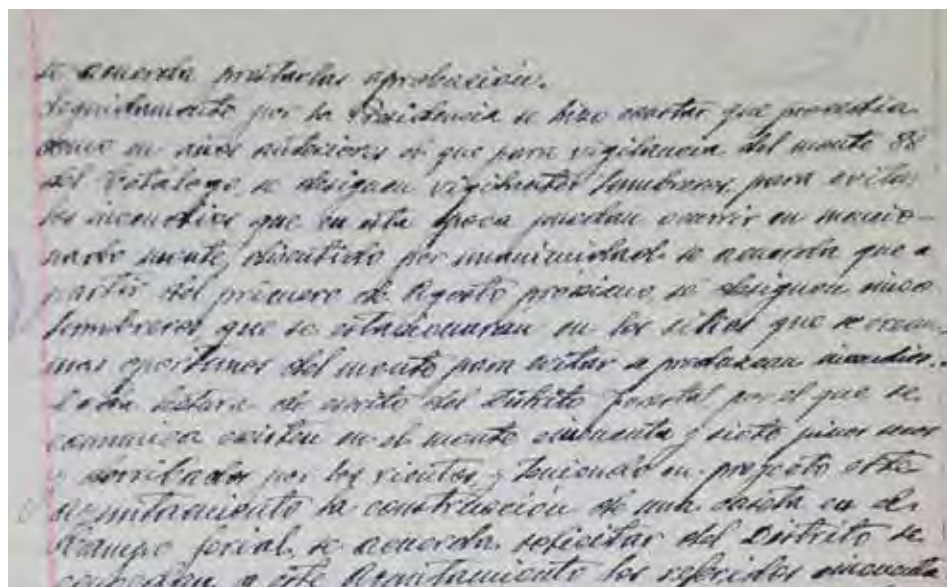 se acuerda prestarlas aprobación.
Seguidamente por la Presidencia se hizo constar que procedia
como en años anteriores el que para vigilancia del monte 88
del Catálogo se designen vigilantes lumbreros, para evitar
los incendios que en esta época puedan ocurrir en mencio-
nando monte, discutido por unanimidad se acuerda que a
partir del primero de Agosto proximo, se designen
lumbreros, que se estacionaran en los sitios que se crean,
mas oportunos del monte para evitar se produzcan incendios.
Dada lectura de escrito del Distrito forestal por el que se
comunica existen en el monte cincuenta y siete pinos
y derribados por los vientos y teniendo en proyecto este
Ayuntamiento la construcción de una caseta en el
Campo ferial, se acuerda, solicitar del Distrito se
concedan a este Ayuntamiento los referidos cincuenta